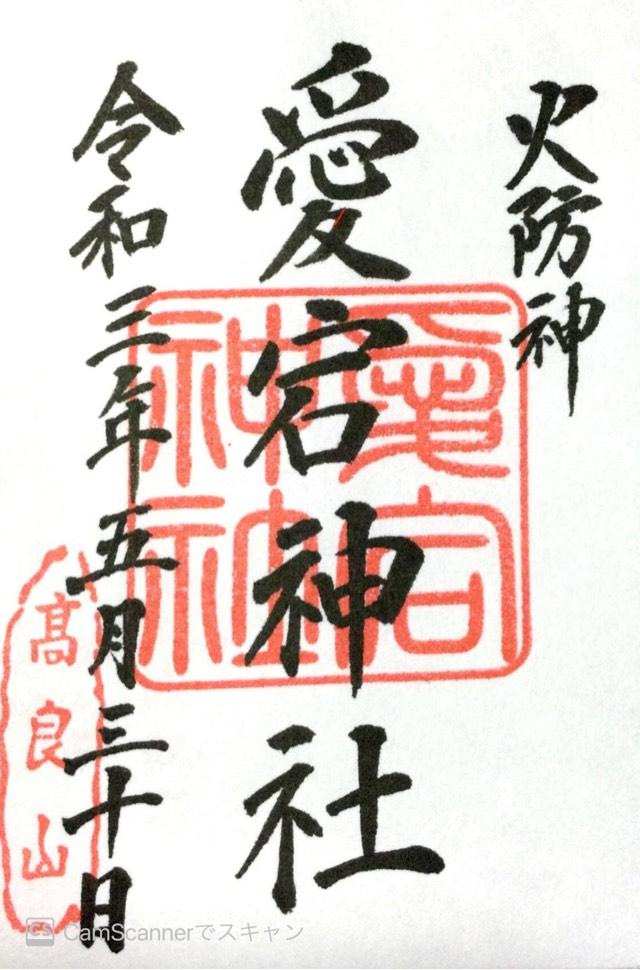 火防神
愛宕神社
愛宕
神社
令和三年五月三十日
高良山
CS CamScannerでスキャン